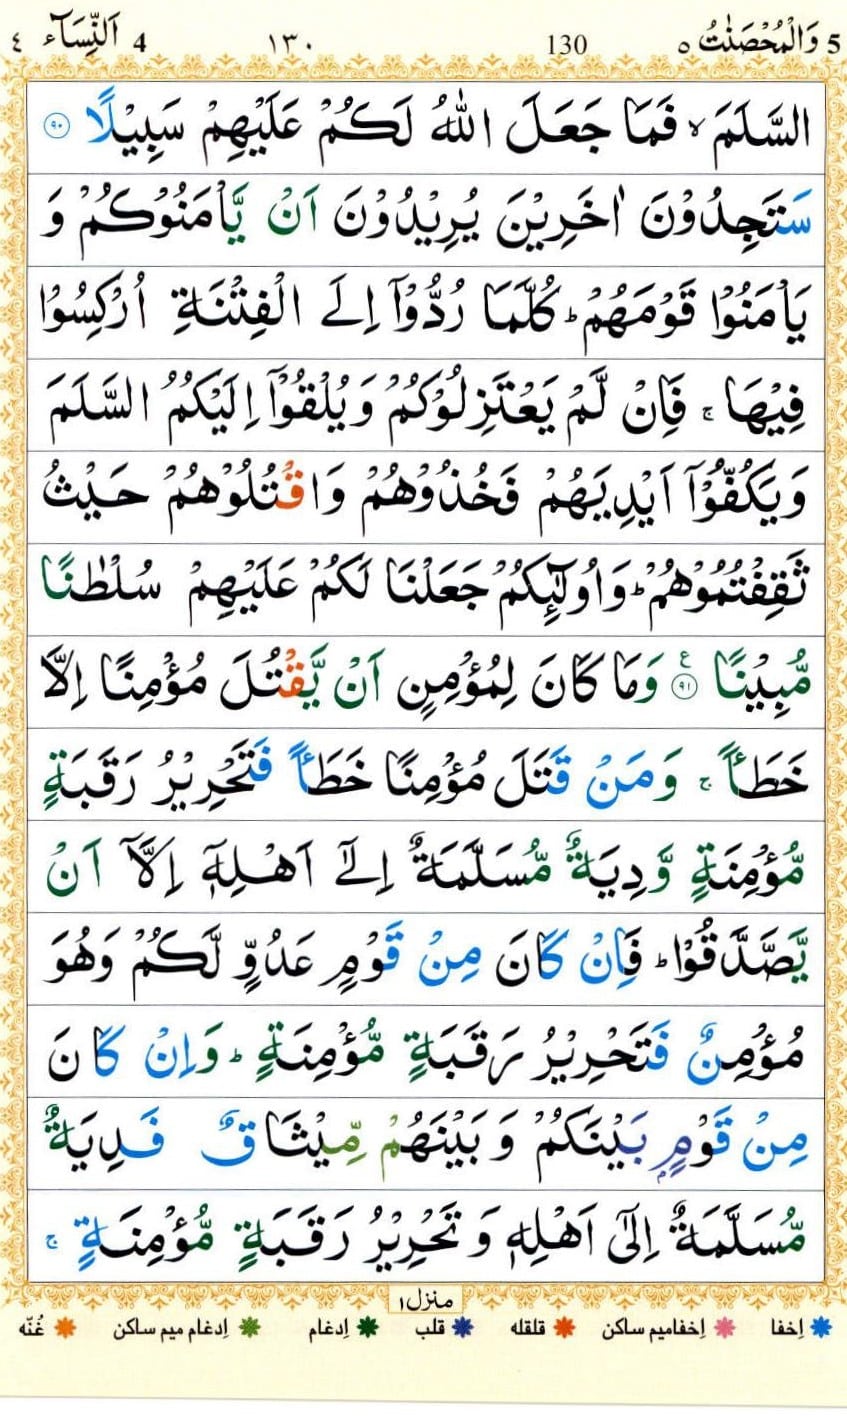 5 وَالْمُحْصَنٰتُ ٥ 130 ١٣٠ 4 اَلنِّسَآء ٤
السَّلَمَ ۙ فَمَا جَعَلَ اللّٰهُ لَكُمْ عَلَيْهِمْ سَبِيْلًا ۹۰
سَتَجِدُوْنَ اٰخَرِيْنَ يُرِيْدُوْنَ اَنْ يَّاْمَنُوْكُمْ وَ
يَاْمَنُوْا قَوْمَهُمْ ؕ كُلَّمَا رُدُّوْۤا اِلَى الْفِتْنَةِ اُرْكِسُوْا
فِيْهَا ۚ فَاِنْ لَّمْ يَعْتَزِلُوْكُمْ وَيُلْقُوْۤا اِلَيْكُمُ السَّلَمَ
وَيَكُفُّوْۤا اَيْدِيَهُمْ فَخُذُوْهُمْ وَاقْتُلُوْهُمْ حَيْثُ
ثَقِفْتُمُوْهُمْ ؕ وَاُولٰٓئِكُمْ جَعَلْنَا لَكُمْ عَلَيْهِمْ سُلْطٰنًا
مُّبِيْنًا ۹۱ ع وَمَا كَانَ لِمُؤْمِنٍ اَنْ يَّقْتُلَ مُؤْمِنًا اِلَّا
خَطَـًٔا ۚ وَمَنْ قَتَلَ مُؤْمِنًا خَطَـًٔا فَتَحْرِيْرُ رَقَبَةٍ
مُّؤْمِنَةٍ وَّدِيَةٌ مُّسَلَّمَةٌ اِلٰٓى اَهْلِهٖۤ اِلَّاۤ اَنْ
يَّصَّدَّقُوْا ؕ فَاِنْ كَانَ مِنْ قَوْمٍ عَدُوٍّ لَّكُمْ وَهُوَ
مُؤْمِنٌ فَتَحْرِيْرُ رَقَبَةٍ مُّؤْمِنَةٍ ؕ وَاِنْ كَانَ
مِنْ قَوْمٍۭ بَيْنَكُمْ وَبَيْنَهُمْ مِّيْثَاقٌ فَدِيَةٌ
مُّسَلَّمَةٌ اِلٰٓى اَهْلِهٖ وَتَحْرِيْرُ رَقَبَةٍ مُّؤْمِنَةٍ ۚ
منزل ١
اِخفا اِخفامیم ساکن قلقله قلب اِدغام اِدغام میم ساکن غُنّه